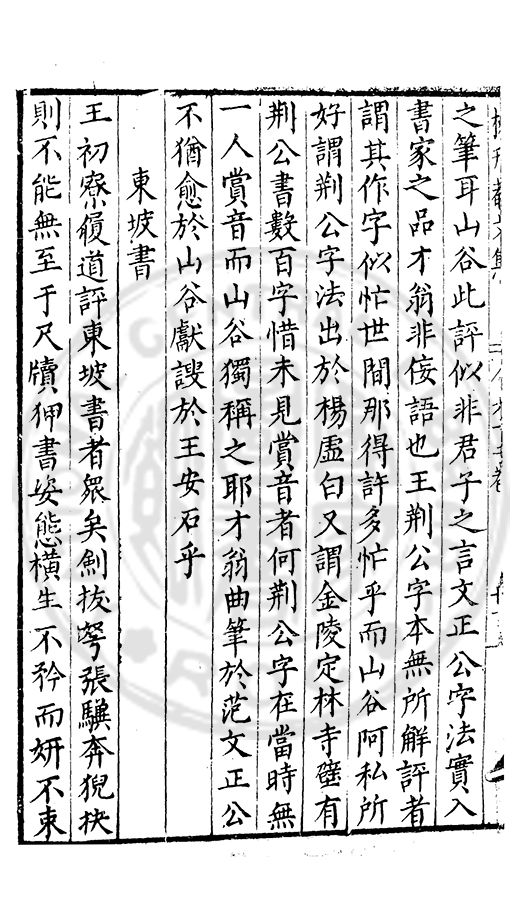 之筆耳山谷此評似非君子之言文正公字法實入
書家之品才翁非佞語也王荆公字本無所解評者
謂其作字似忙世間那得許多忙乎而山谷阿私所
好謂荆公字法出於楊虛白又謂金陵定林寺壁有
荆公書數百字惜未見賞音者何荆公字在當時無
一人賞音而山谷獨稱之耶才翁曲筆於范文正公
不猶愈於山谷獻諛於王安石乎
東坡書
王初寮履道評東坡書者衆矣劍抜弩張驥奔猊抉
則不能無至于尺牘狎書姿態横生不矜而妍不束